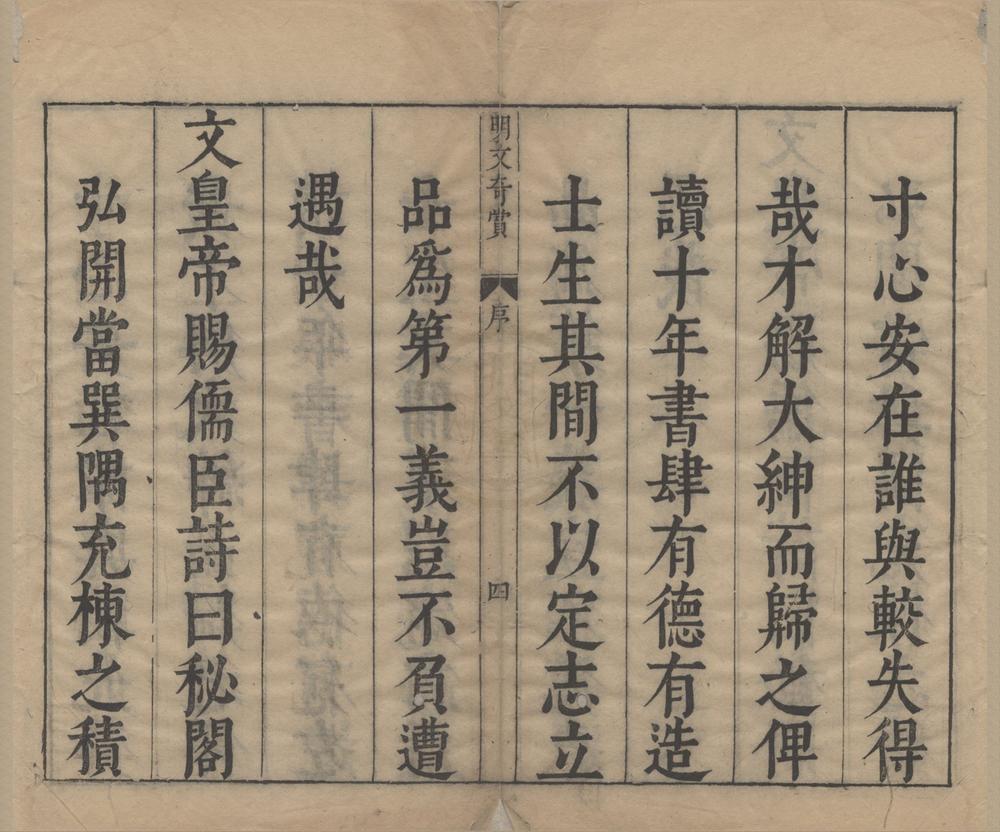 寸心安在誰與較失得
哉才解大紳而歸之俾
讀十年書肆有德有造
士生其間不以定志立
明文奇賞 序 四
品爲第一義豈不負遭
遇哉
文皇帝賜儒臣詩曰秘閣
弘開當巽隅充棟之積